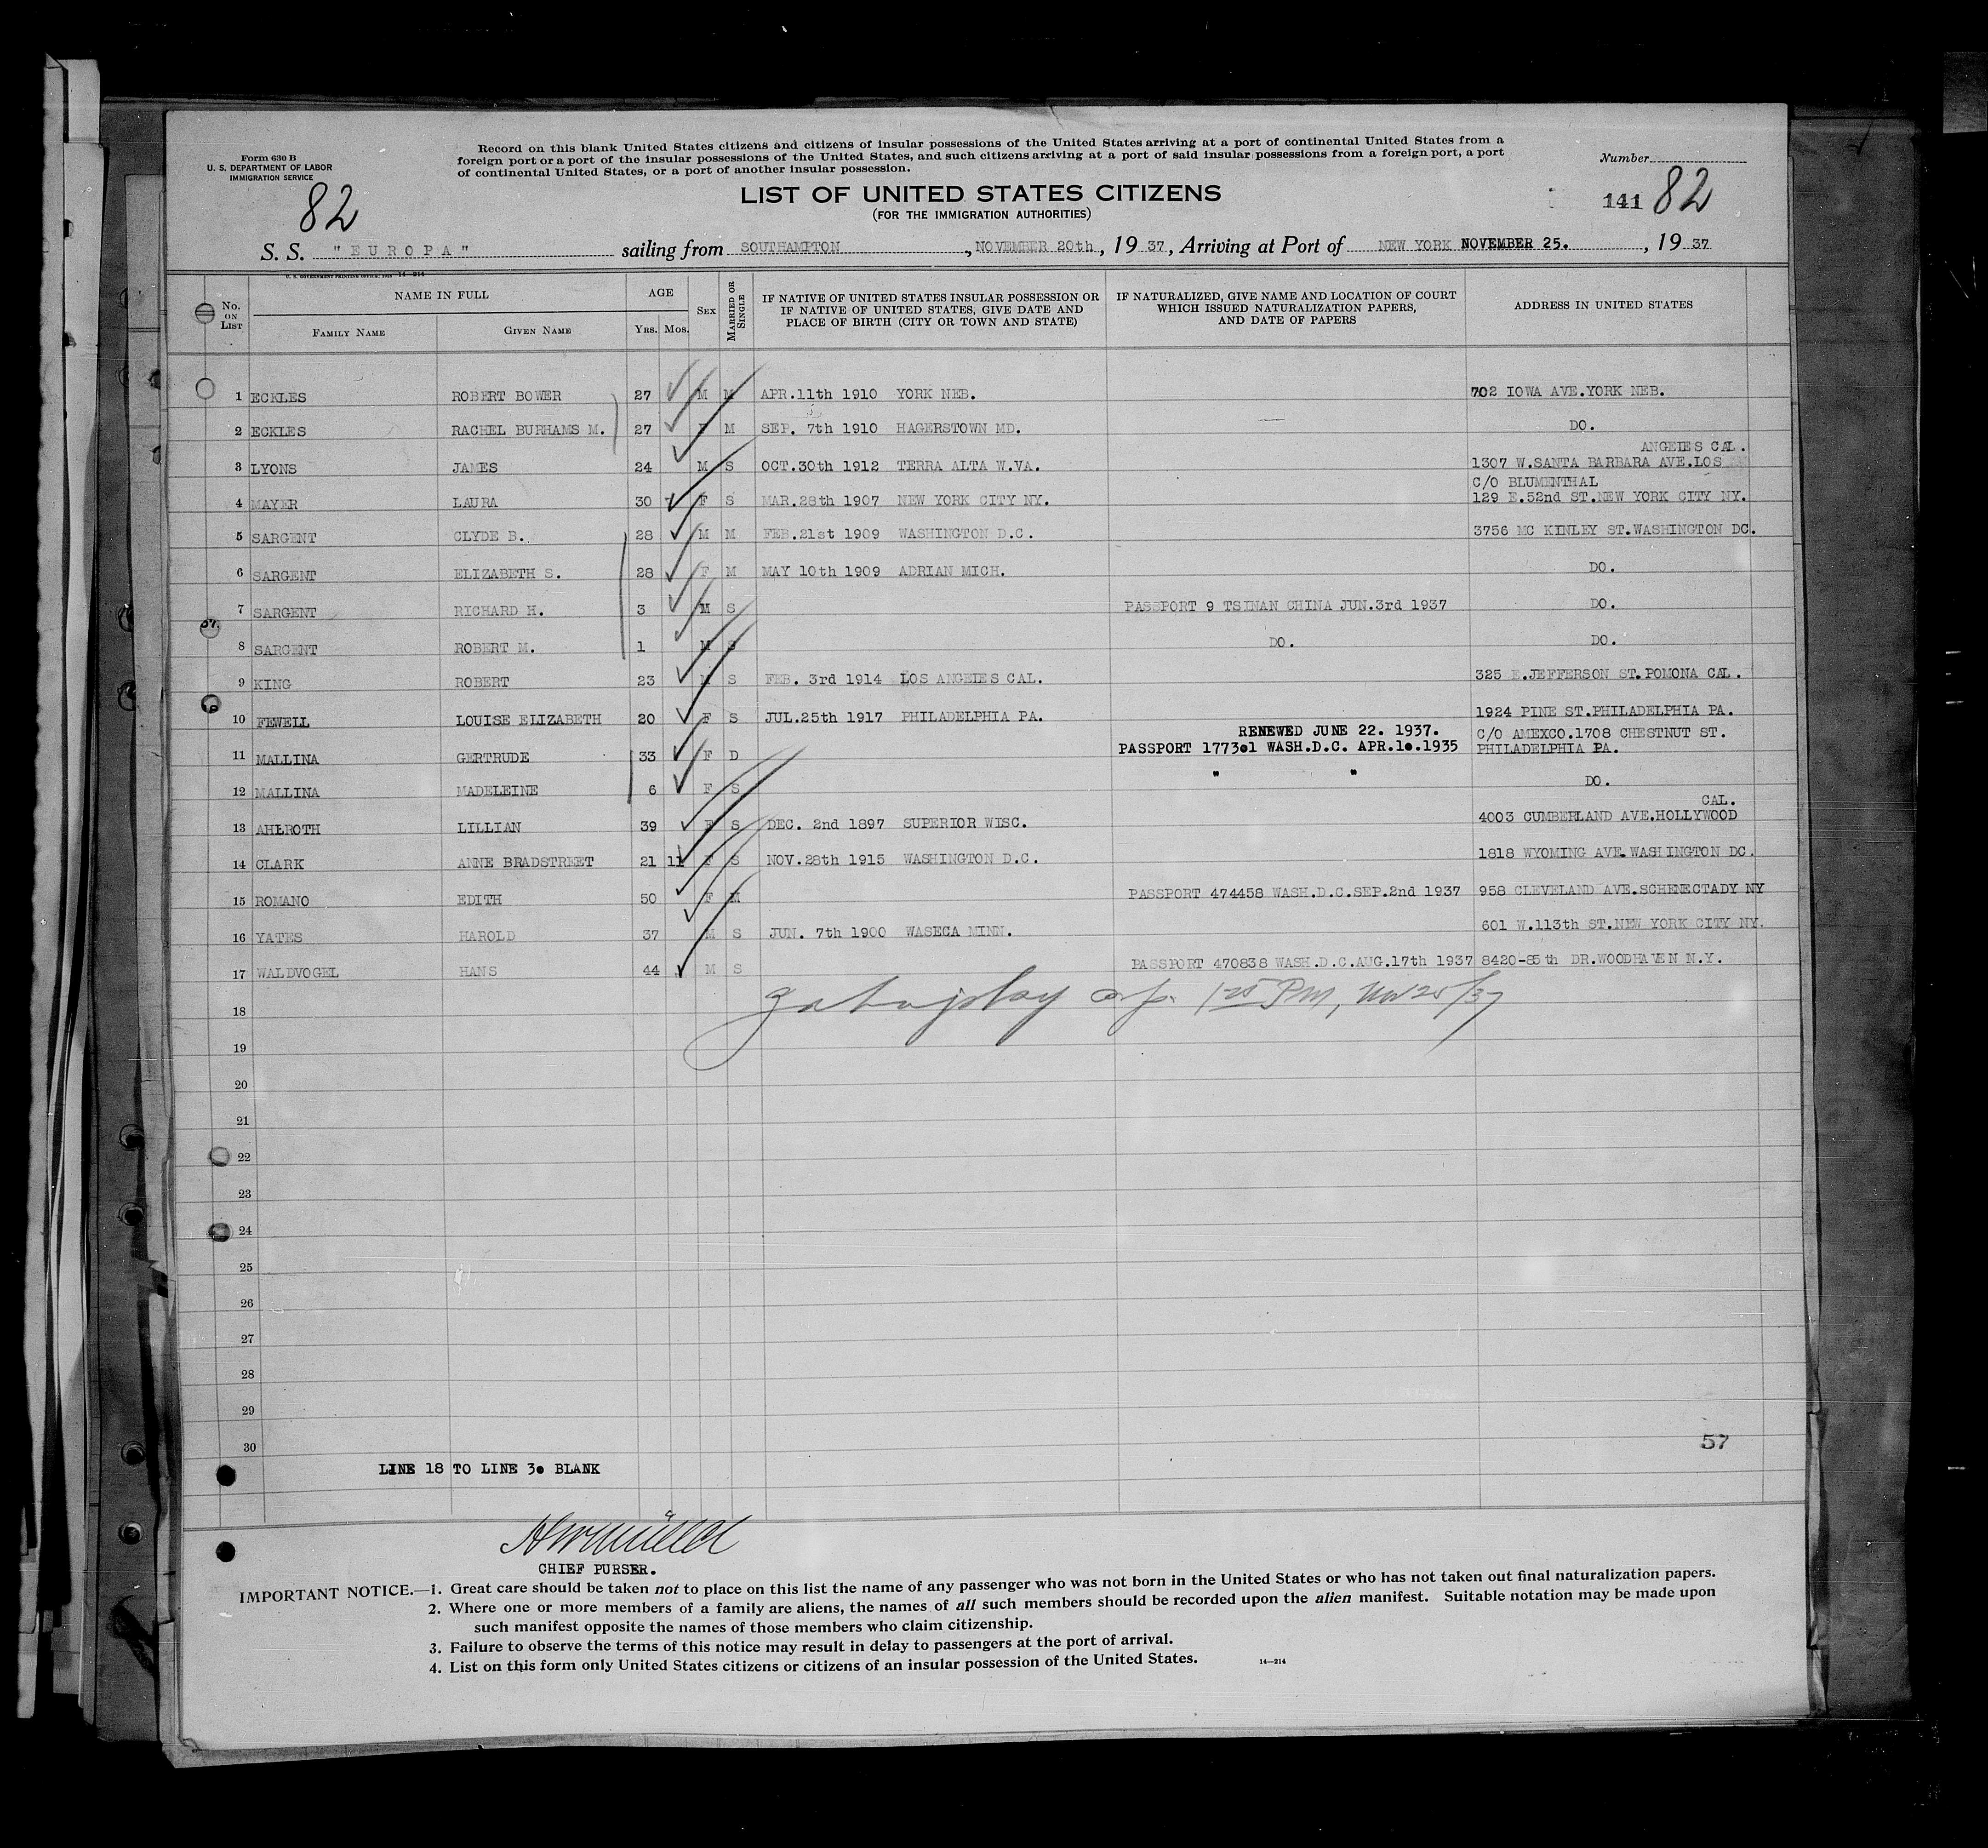 Form 630 B
U. S. DEPARTMENT OF LABOR
IMMIGRATION SERVICE
82
Record on this blank United States citizens and citizens of insular possessions of the United States arriving at a port of continental United States from a
foreign port or a port of the insular possessions of the United States, and such citizens arriving at a port of said insular possessions from a foreign port, a port
of continental United States, or a port of another insular possession.
Number
LIST OF UNITED STATES CITIZENS
(FOR THE IMMIGRATION AUTHORITIES)
141 82
S. S. "EUROPA" sailing from SOUTHAMPTON, NOVEMBER 20th, 19 37, Arriving at Port of NEW YORK NOVEMBER 25., 19 37
No. ON LIST NAME IN FULL FAMILY NAME GIVEN NAME AGE YRS. MOS. SEX MARRIED OR SINGLE IF NATIVE OF UNITED STATES INSULAR POSSESSION OR IF NATIVE OF UNITED STATES, GIVE DATE AND PLACE OF BIRTH (CITY OR TOWN AND STATE) IF NATURALIZED, GIVE NAME AND LOCATION OF COURT WHICH ISSUED NATURALIZATION PAPERS, AND DATE OF PAPERS ADDRESS IN UNITED STATES
1 ECKLES ROBERT BOWER 27 M M APR.11th 1910 YORK NEB. 702 IOWA AVE.YORK NEB.
2 ECKLES RACHEL BURHAMS M. 27 F M SEP. 7th 1910 HAGERSTOWN MD. DO.
ANGELES CAL.
3 LYONS JAMES 24 M S OCT.30th 1912 TERRA ALTA W.VA. 1307 W.SANTA BARBARA AVE.LOS
C/O BLUMENTHAL
4 MAYER LAURA 30 F S MAR.28th 1907 NEW YORK CITY NY. 129 E.52nd ST.NEW YORK CITY NY.
5 SARGENT CLYDE B. 28 M M FEB.21st 1909 WASHINGTON D.C. 3756 MC KINLEY ST.WASHINGTON DC.
6 SARGENT ELIZABETH S. 28 F M MAY 10th 1909 ADRIAN MICH. DO.
7 SARGENT RICHARD H. 3 M S PASSPORT 9 TSINAN CHINA JUN.3rd 1937 DO.
8 SARGENT ROBERT M. 1 M S DO. DO.
9 KING ROBERT 23 M S FEB. 3rd 1914 LOS ANGELES CAL. 325 E.JEFFERSON ST.POMONA CAL.
10 FEWELL LOUISE ELIZABETH 20 F S JUL.25th 1917 PHILADELPHIA PA. 1924 PINE ST.PHILADELPHIA PA.
RENEWED JUNE 22. 1937. C/O AMEXCO.1708 CHESTNUT ST.
11 MALLINA GERTRUDE 33 F D PASSPORT 177301 WASH.D.C. APR.10.1935 PHILADELPHIA PA.
12 MALLINA MADELEINE 6 F S " " DO.
CAL.
13 AHLROTH LILLIAN 39 F S DEC. 2nd 1897 SUPERIOR WISC. 4003 CUMBERLAND AVE.HOLLYWOOD
14 CLARK ANNE BRADSTREET 21 11 F S NOV.28th 1915 WASHINGTON D.C. 1818 WYOMING AVE.WASHINGTON DC.
15 ROMANO EDITH 50 F M PASSPORT 474458 WASH.D.C.SEP.2nd 1937 958 CLEVELAND AVE.SCHENECTADY NY
16 YATES HAROLD 37 M S JUN. 7th 1900 WASECA MINN. 601 W.113th ST.NEW YORK CITY NY.
17 WALDVOGEL HANS 44 M S PASSPORT 470838 WASH.D.C.AUG.17th 1937 8420-85th DR.WOODHAVEN N.Y.
18
19
20
21
22
23
24
25
26
27
28
29
30
57
LINE 18 TO LINE 30 BLANK
CHIEF PURSER.
IMPORTANT NOTICE.—1. Great care should be taken not to place on this list the name of any passenger who was not born in the United States or who has not taken out final naturalization papers.
2. Where one or more members of a family are aliens, the names of all such members should be recorded upon the alien manifest. Suitable notation may be made upon
such manifest opposite the names of those members who claim citizenship.
3. Failure to observe the terms of this notice may result in delay to passengers at the port of arrival.
4. List on this form only United States citizens or citizens of an insular possession of the United States. 14—214